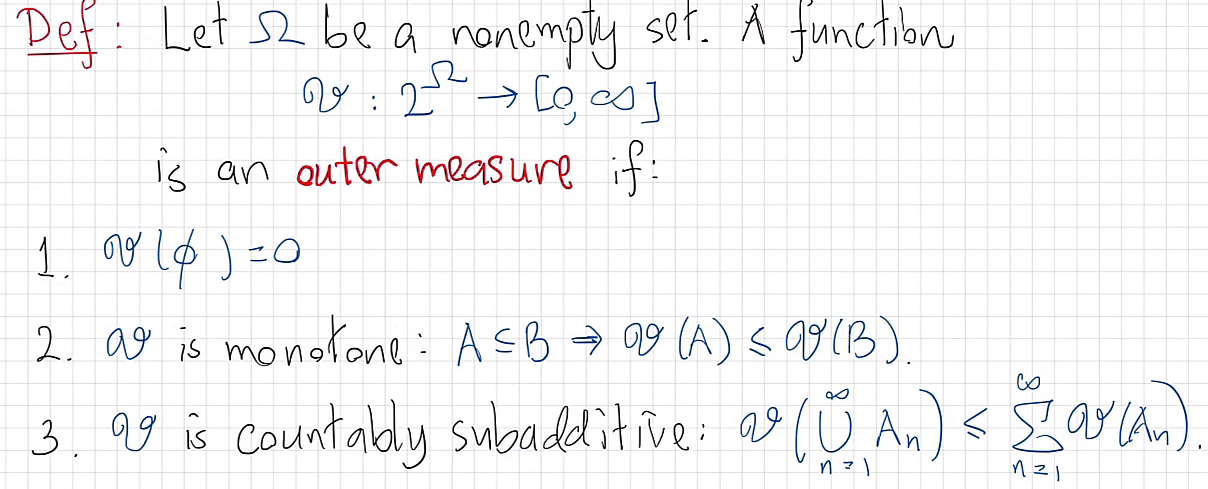 Def: Let Ω be a nonempty set. A function
𝜗 : 2^Ω → [0, ∞]
is an outer measure if:
1. 𝜗(ϕ) = 0
2. 𝜗 is monotone: A ⊆ B ⇒ 𝜗(A) ≤ 𝜗(B).
3. 𝜗 is countably subadditive: 𝜗(⋃_{n=1}^∞ A_n) ≤ ∑_{n=1}^∞ 𝜗(A_n).